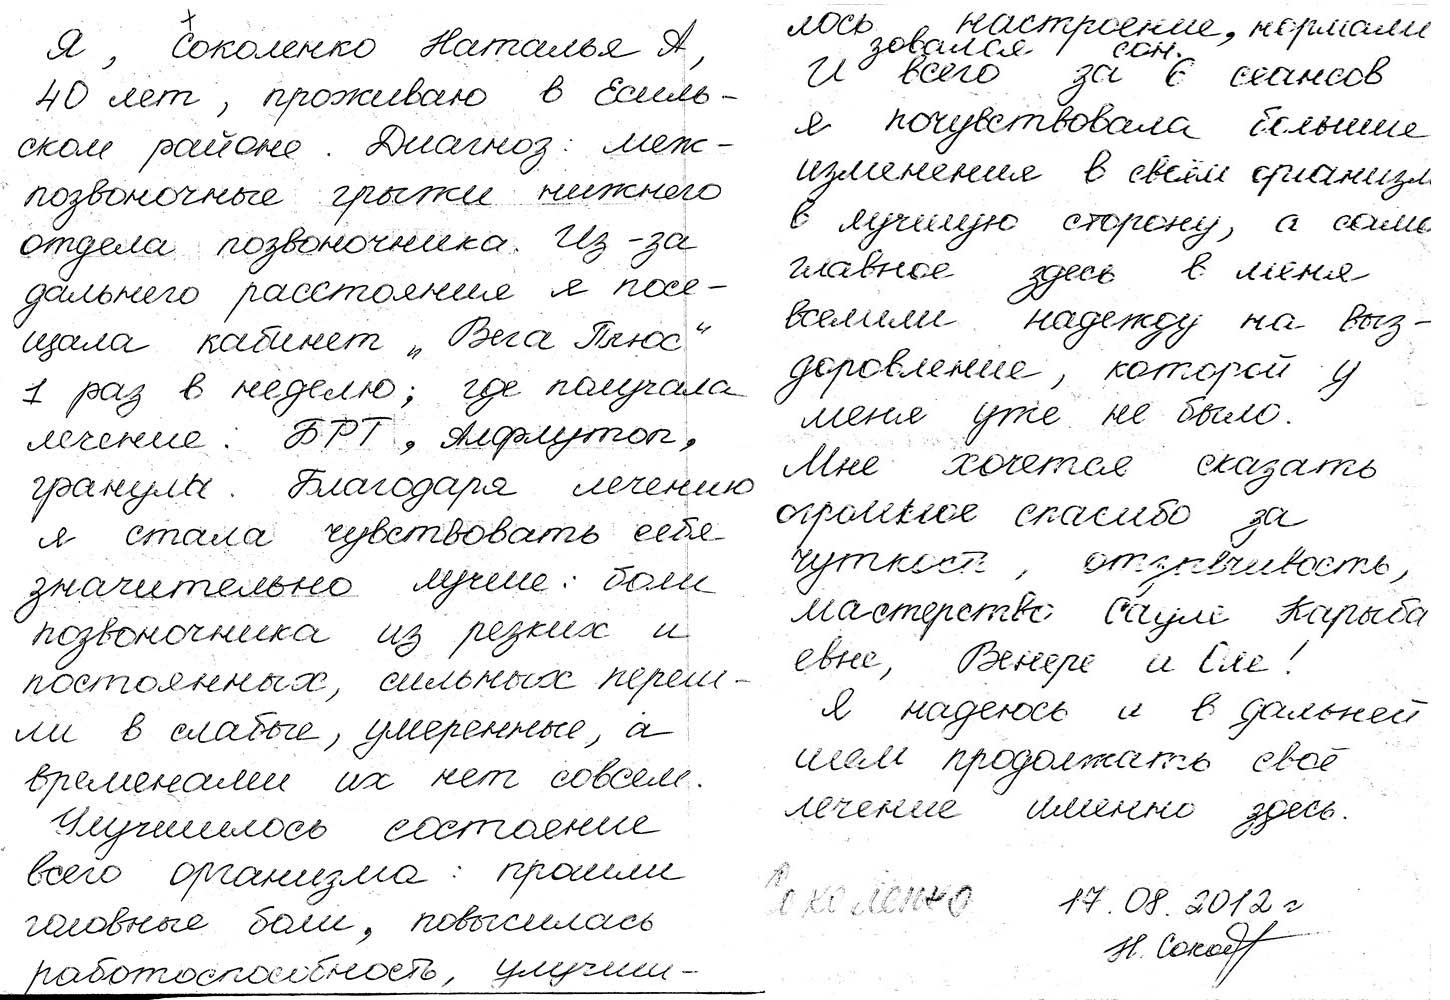 Я, Соколенко Наталья А,
40 лет, проживаю в Есиль-
ском районе. Диагноз: меж-
позвоночные грыжи нижнего
отдела позвоночника. Из-за
дальнего расстояния я посе-
щала кабинет „Вега Плюс“
1 раз в неделю; где получала
лечение: БРТ, Алфлутоп,
гранулы. Благодаря лечению
я стала чувствовать себя
значительно лучше: боли
позвоночника из резких и
постоянных, сильных переш-
ли в слабые, умеренные, а
временами их нет совсем.
Улучшилось состояние
всего организма: прошли
головные боли, повысилась
работоспособность, улучши-
лось настроение, нормали
зовался сон.
И всего за 6 сеансов
я почувствовала большие
изменения в своём организм
в лучшую сторону, а само
главное здесь в меня
вселили надежду на выз-
доровление, которой у
меня уже не было.
Мне хочется сказать
огромное спасибо за
чуткость, отзывчивость,
мастерство Сауле Карыба
евне, Венере и Оле!
Я надеюсь и в дальней
шем продолжать своё
лечение именно здесь.
Соколенко 17.08.2012 г
Н. Сокол